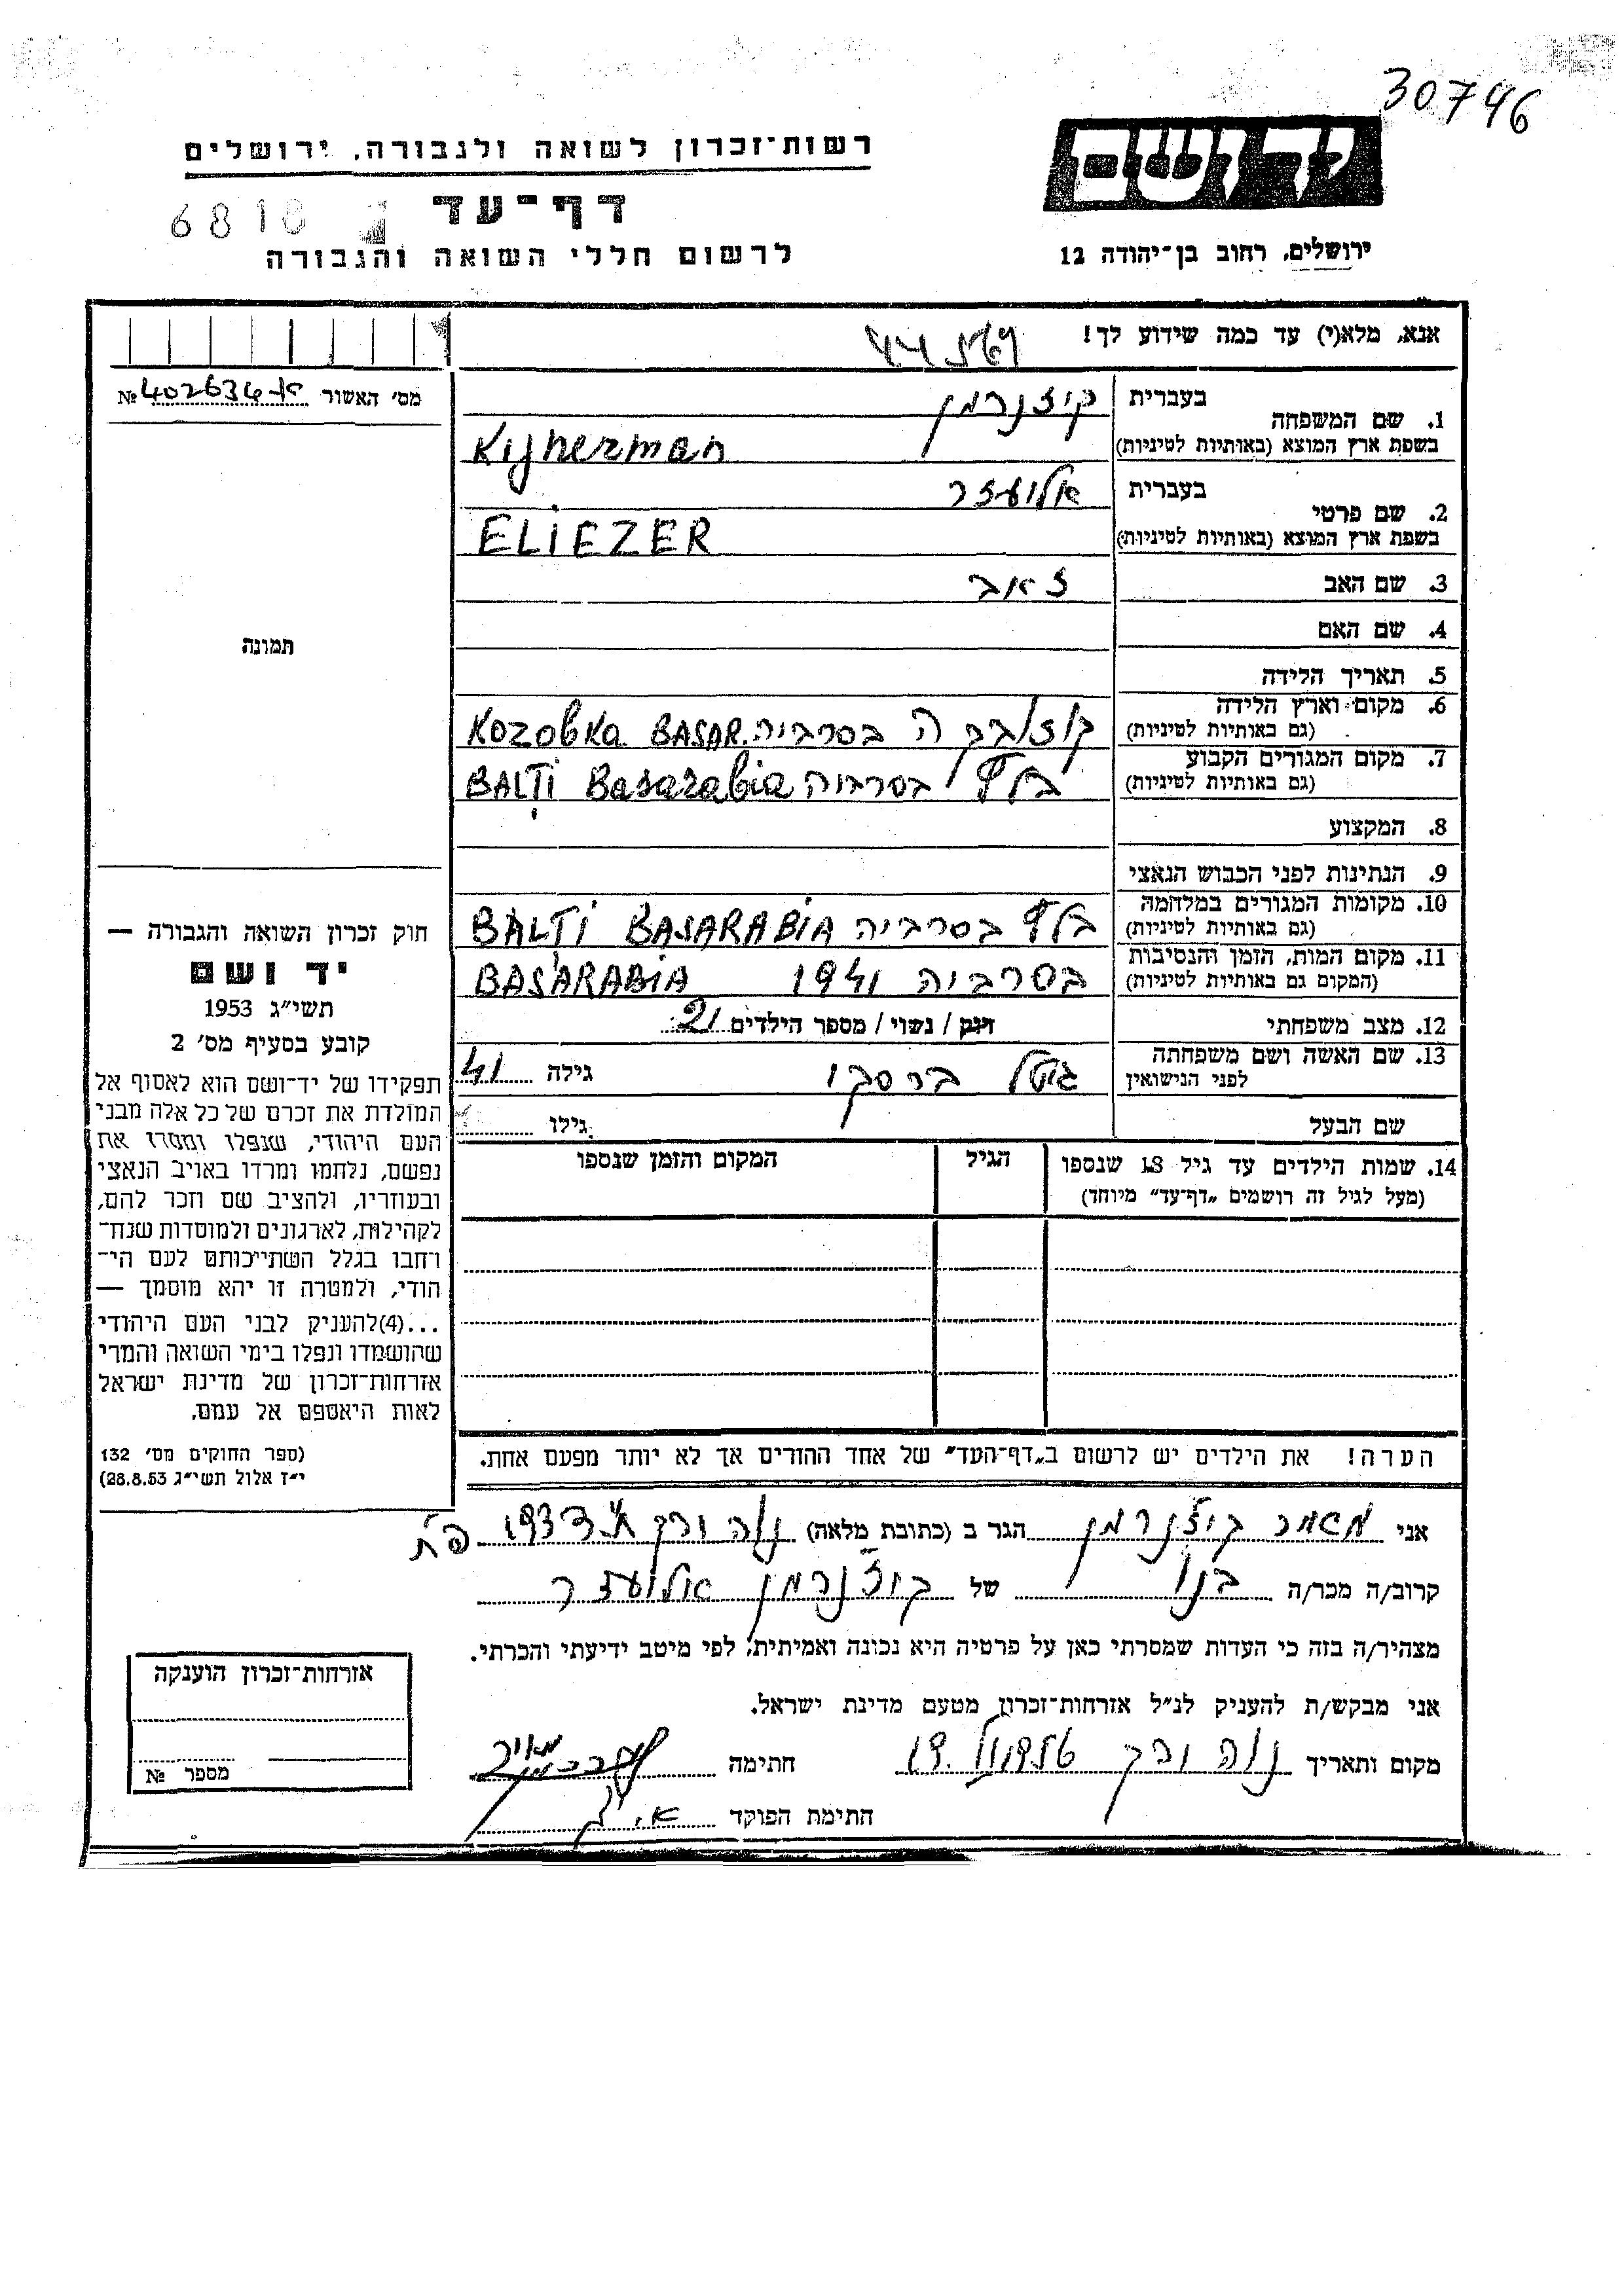 30746
יד ושם
רשות־זכרון לשואה ולגבורה, ירושלים
דף־עד
6810
לרשום חללי השואה והגבורה
ירושלים, רחוב בן־יהודה 12
אנא, מלא(י) עד כמה שידוע לך!
מס׳ האשור №
1. שם המשפחה
בעברית
בשפת ארץ המוצא (באותיות לטיניות)
קיזנרמן
Kijnerman
2. שם פרטי
בעברית
בשפת ארץ המוצא (באותיות לטיניות)
אליעזר
ELIEZER
3. שם האב זאב
4. שם האם
5. תאריך הלידה
6. מקום וארץ הלידה
(גם באותיות לטיניות)
בסרביה KOZOBKA BASAR.
7. מקום המגורים הקבוע
(גם באותיות לטיניות)
בלץ בסרביה BALTI Basarabia
8. המקצוע
9. הנתינות לפני הכבוש הנאצי
10. מקומות המגורים במלחמה
(גם באותיות לטיניות)
בלץ בסרביה BALTI BASARABIA
11. מקום המות, הזמן והנסיבות
(המקום גם באותיות לטיניות)
בסרביה 1941 BASARABIA
12. מצב משפחתי
רווק / נשוי / מספר הילדים 2
13. שם האשה ושם משפחתה
לפני הנישואין
גיטל ברסקי גילה 41
שם הבעל גילו
14. שמות הילדים עד גיל 18 שנספו
(מעל לגיל זה רושמים „דף־עד״ מיוחד)
הגיל
המקום והזמן שנספו
תמונה
חוק זכרון השואה והגבורה —
יד ושם
תשי״ג 1953
קובע בסעיף מס׳ 2
תפקידו של יד־ושם הוא לאסוף אל
המולדת את זכרם של כל אלה מבני
העם היהודי, שנפלו ומסרו את
נפשם, נלחמו ומרדו באויב הנאצי
ובעוזריו, ולהציב שם וזכר להם,
לקהילות, לארגונים ולמוסדות שנח־
רחבו בגלל השתייכותם לעם הי־
הודי, ולמטרה זו יהא מוסמך —
...(4)להעניק לבני העם היהודי
שהושמדו ונפלו בימי השואה והמרי
אזרחות־זכרון של מדינת ישראל
לאות היאספם אל עמם.
(ספר החוקים מס׳ 132
י״ז אלול תשי״ג 28.8.53)
הערה! את הילדים יש לרשום ב„דף־העד״ של אחד ההורים אך לא יותר מפעם אחת.
אני מאיר קיזנרמן הגר ב (כתובת מלאה) נוה ירק ת.ד 1933 פ״ת
קרוב/ה מכר/ה בנו של קיזנרמן אליעזר
מצהיר/ה בזה כי העדות שמסרתי כאן על פרטיה היא נכונה ואמיתית, לפי מיטב ידיעתי והכרתי.
אני מבקש/ת להעניק לנ״ל אזרחות־זכרון מטעם מדינת ישראל.
מקום ותאריך נוה ירק חתימה
חתימת הפוקד
אזרחות־זכרון הוענקה
מספר №